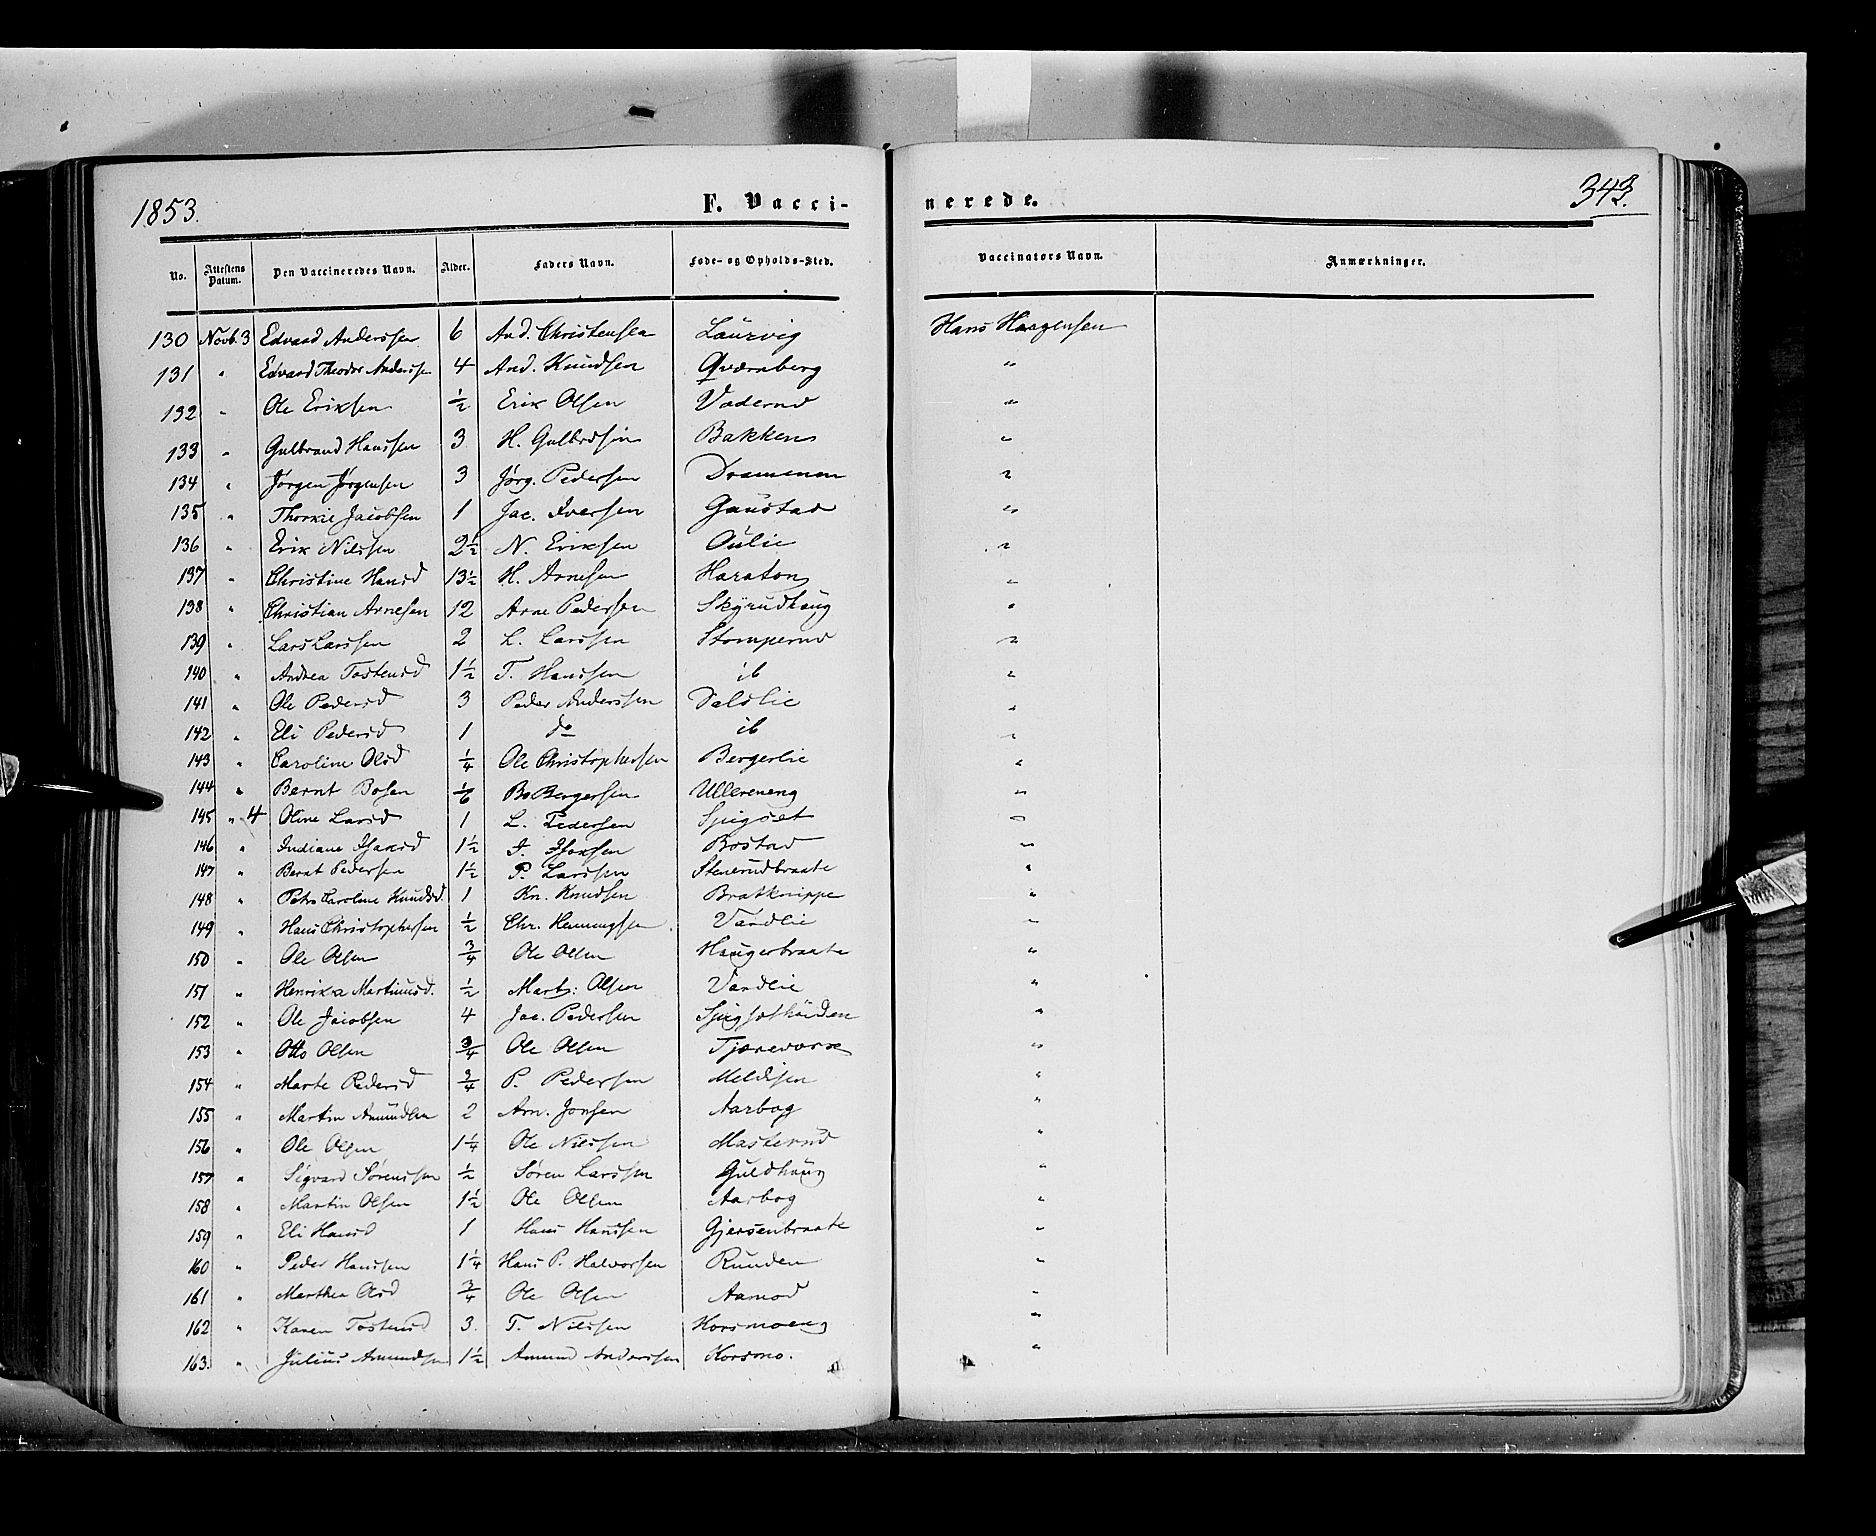 1853. F. Vacci- nerede. 343.
No. Attestens Datum. Den Vaccineredes Navn. Alder. Faders Navn. Føde- og Opholds-Sted. Vaccinators Navn. Anmærkninger.
130 Novb. 3 Edvard Anderssen 6 And. Christensen Laurvig Hans Haagensen
131 " Edvard Theodor Anderssen 4 And. Knudsen Qværnberg "
132 " Ole Eriksen ½ Erik Olsen "
133 " Gulbrand Hanssen 3 H. Gulbrdsen Bakken "
134 " Jørgen Jørgensen 3 Jørg. Pedersen Drammen "
135 " Jacobsen 1 Jac. Iversen Gaustad "
136 " Erik Nilssen 2½ N. Eriksen Oulie "
137 " Christine Hansd 13½ H. Arnesen Haraton "
138 " Christian Arnesen 12 Arne Pedersen Skyrudhaug "
139 " Lars Larssen 2 L. Larssen Stomperud "
140 " Andrea Tostensd 1½ T. Hanssen ib "
141 " Ole Pedersd 3 Peder Anderssen Dalslie "
142 " Eli Pedersd 1 do ib "
143 " Caroline Olsd ¼ Ole Christophersen Bergerlie "
144 " Bernt Bosen 1/6 Bo Bergersen Ullereneng "
145 " 4 Oline Larsd 1 L. Pedersen Spigset "
146 " Indiane Isaksd 1½ I. Bostad "
147 " Bernt Pedersen 1½ P. Larssen Stenerudbraate "
148 " Petra Caroline Knudsd. 1 Kn. Knudsen Bratknippe "
149 " Hans Christophersen ½ Chr. Henningsen Vardlie "
150 " Ole Olsen ¾ Ole Olsen Haugerbraate "
151 " Henrika Martinusd. ½ Marts: Olsen Vardlie "
152 " Ole Jacobsen 4 Jac. Pedersen "
153 " Otto Olsen ¾ Ole Olsen "
154 " Marte Pedersd ¾ P. Pedersen Meldisen "
155 " Martin Amundsen 2 Am. Jonsen Aarbog "
156 " Ole Olsen 1¼ Ole Nilssen Masterud "
157 " Sigvard Sørenssen ½ Søren Larssen Guldhaug "
158 " Martin Olsen 1½ Ole Olsen Aarbog "
159 " Eli Hansd 1 Hans Hanssen Gjersenbraate "
160 " Peder Hanssen 1¼ Hans P. Halvorsen Runden "
161 " Marthea Olsd ¾ Ole Olsen Aamod "
162 " Karen Tostensd 3. T. Nilssen Korsmoeng "
163. " Julius Amundsen 1½ Amund Anderssen Korsmo. "